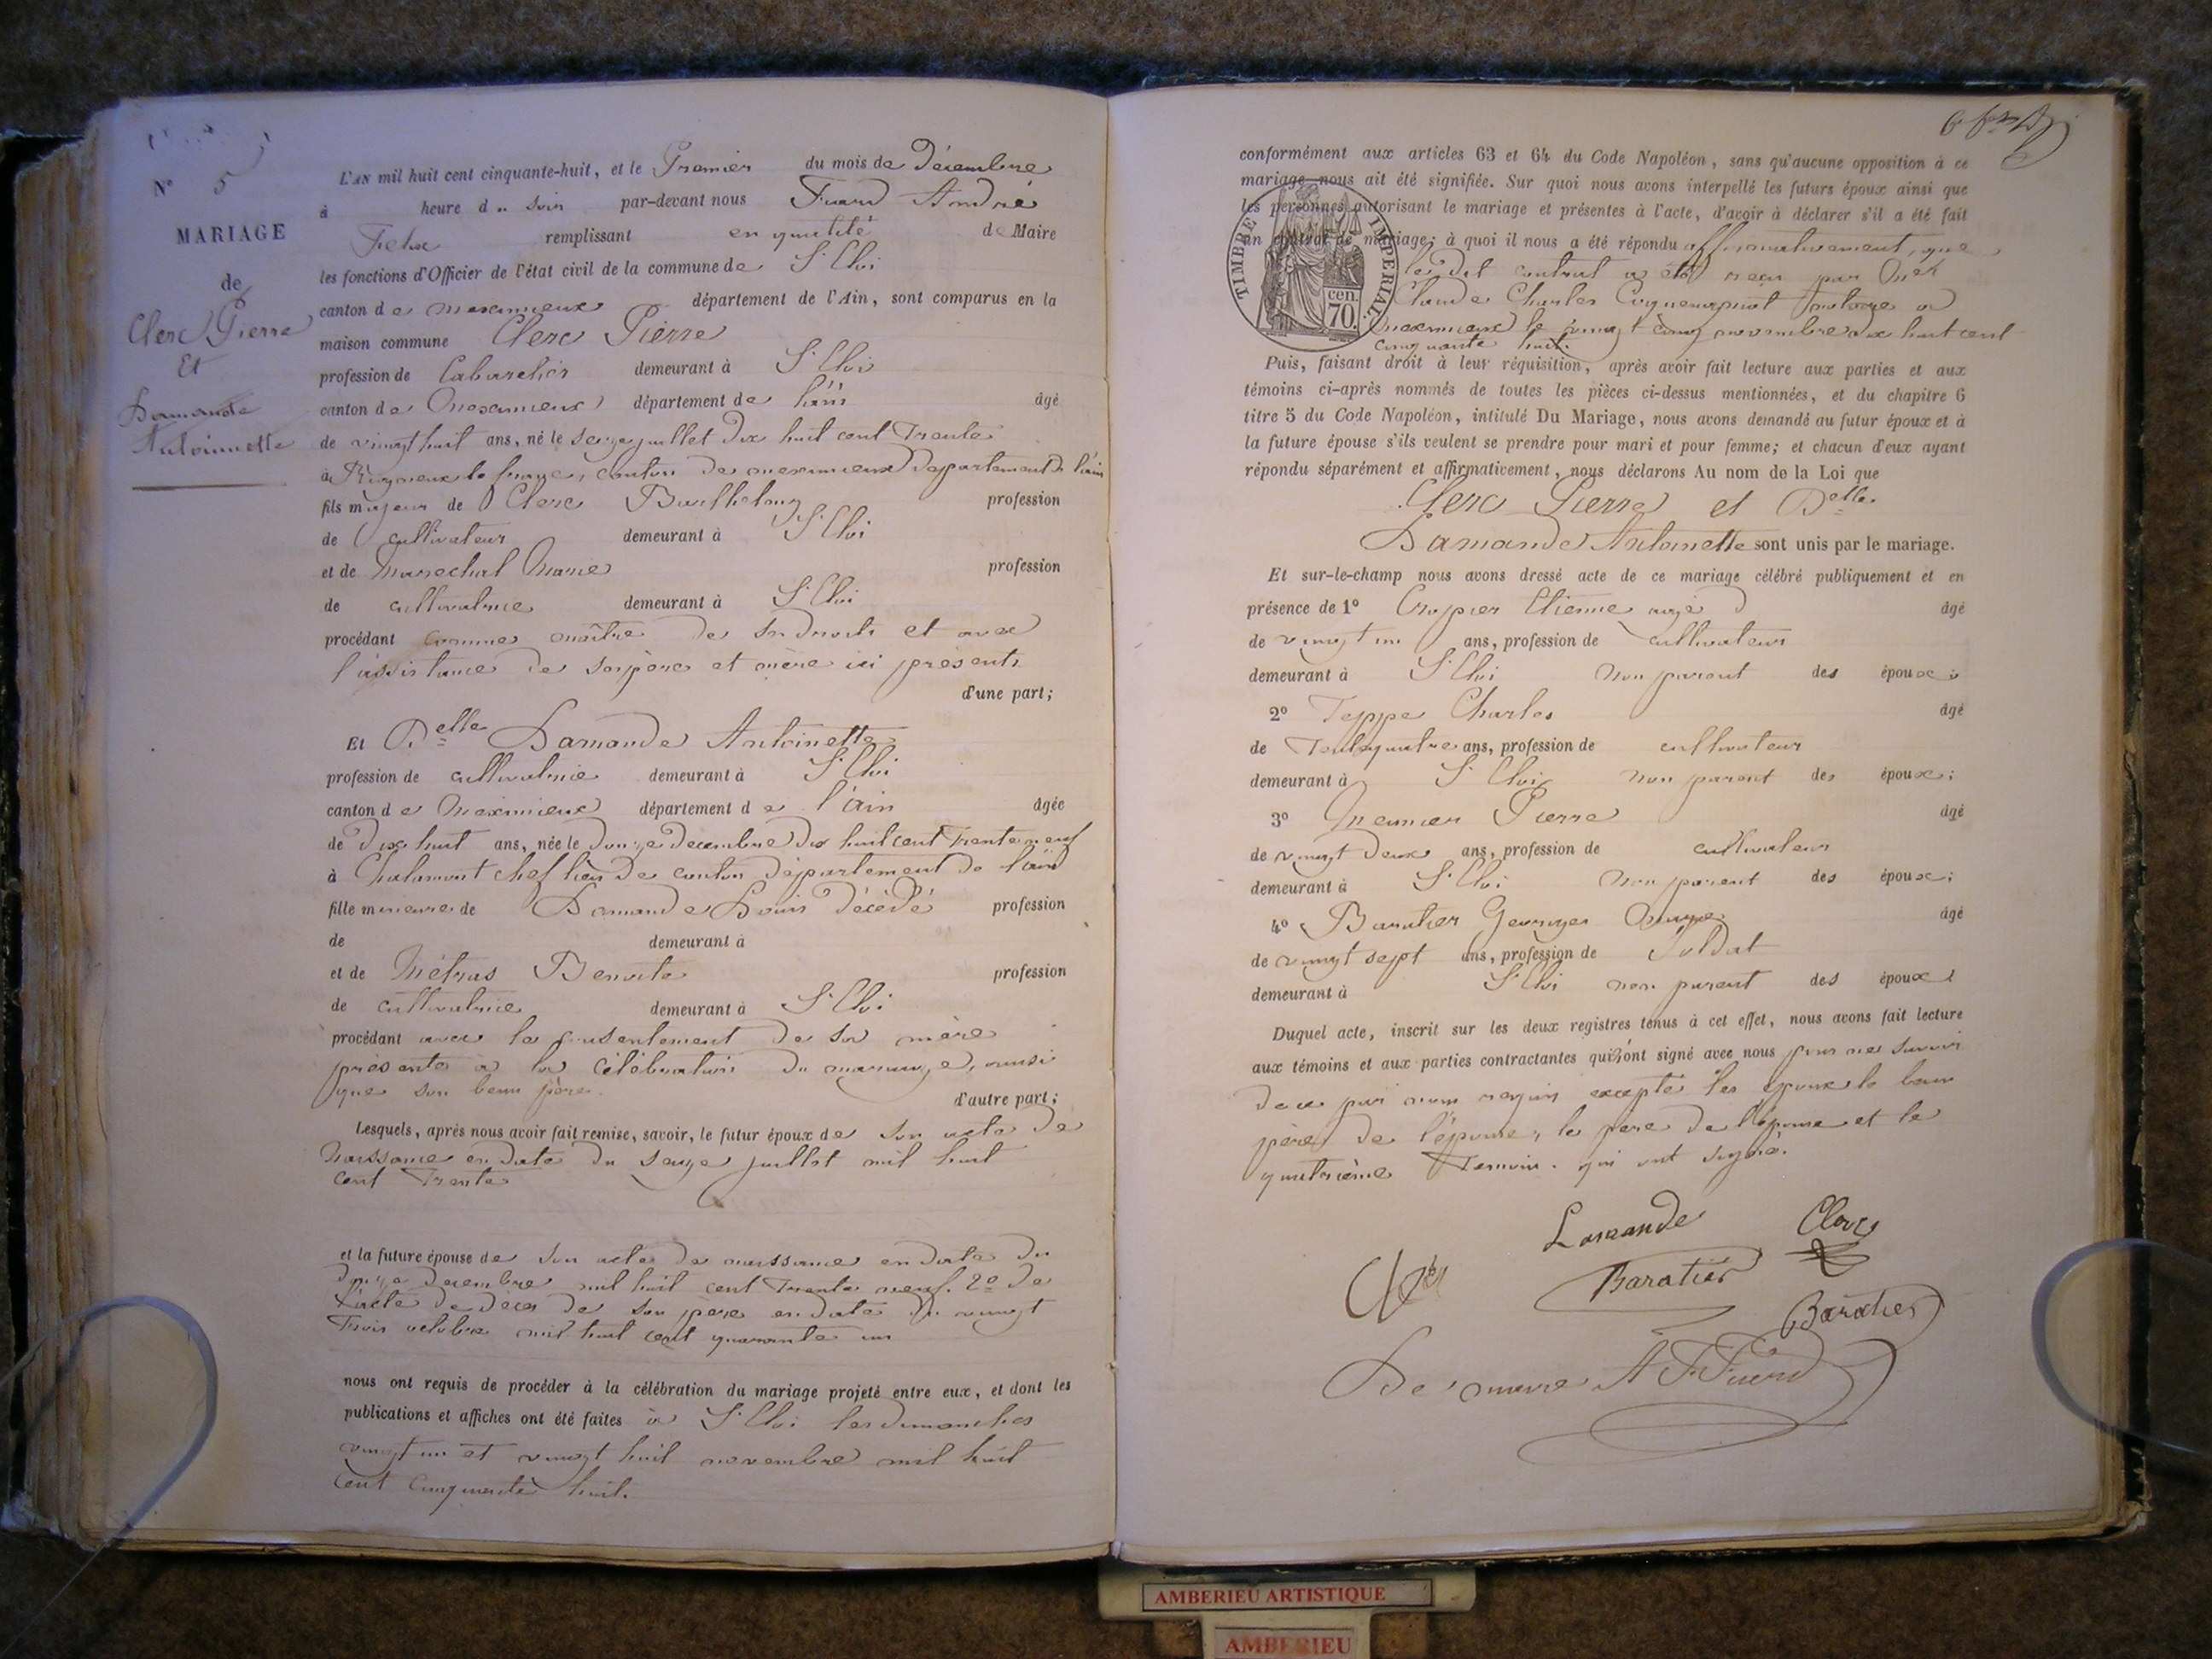 N° 5
MARIAGE
de
Clerc Pierre
Et
Damande
Antoinette
L'AN mil huit cent cinquante-huit, et le Premier du mois de Décembre
à heure du soir par-devant nous Fuard André
remplissant en qualité de Maire
les fonctions d'Officier de l'état civil de la commune de St Eloi
canton de meximieux département de l'Ain, sont comparus en la
maison commune Clerc Pierre
profession de Cabaretier demeurant à St Eloi
canton de Meximieux département de l'ain âgé
de vingt huit ans, né le seize juillet dix huit cent Trente
à Rigneux le franc, Canton de meximieux departement de l'ain
fils majeur de Clerc Barthelemy profession
de cultivateur demeurant à St Eloi
et de Marechal Marie profession
de cultivatrice demeurant à St Eloi
procédant comme maître de ses droits et avec
l'assistance de ses père et mère ici présents
d'une part;
Et Delle Damande Antoinette
profession de cultivatrice demeurant à St Eloi
canton de Meximieux département de l'ain âgée
de Dix huit ans, née le Douze Decembre dix huit cent Trente neuf
à Chalamont chef lieu de canton département de l'ain
fille mineure de Damande Louis décédé profession
de demeurant à
et de Métras Benoite profession
de cultivatrice demeurant à St Eloi
procédant avec le consentement de sa mère
présente à la célébration du mariage, ainsi
que son beau père.
d'autre part;
Lesquels, après nous avoir fait remise, savoir, le futur époux de son acte de
Naissance en date du seize juillet mil huit
cent Trente
et la future épouse de son acte de naissance en date du
douze decembre mil huit cent trente neuf. 2º de
l'acte de décès de son père en date du vingt
Trois octobre mil huit cent quarante un
nous ont requis de procéder à la célébration du mariage projeté entre eux, et dont les
publications et affiches ont été faites à St Eloi les dimanches
vingt un et vingt huit novembre mil huit
cent cinquante huit.
conformément aux articles 63 et 64 du Code Napoléon, sans qu'aucune opposition à ce
mariage nous ait été signifiée. Sur quoi nous avons interpellé les futurs époux ainsi que
les personnes autorisant le mariage et présentes à l'acte, d'avoir à déclarer s'il a été fait
un contrat de mariage; à quoi il nous a été répondu affirmativement, que
le dit contrat a été reçu par
Claude Charles notaire à
meximieux le vingt cinq novembre dix huit cent
cinquante huit.
TIMBRE IMPERIAL
cen.
70.
Puis, faisant droit à leur réquisition, après avoir fait lecture aux parties et aux
témoins ci-après nommés de toutes les pièces ci-dessus mentionnées, et du chapitre 6
titre 5 du Code Napoléon, intitulé Du Mariage, nous avons demandé au futur époux et à
la future épouse s'ils veulent se prendre pour mari et pour femme; et chacun d'eux ayant
répondu séparément et affirmativement, nous déclarons Au nom de la Loi que
Clerc Pierre et Delle
Damande Antoinette sont unis par le mariage.
Et sur-le-champ nous avons dressé acte de ce mariage célébré publiquement et en
présence de 1° Crospier Etienne agé âgé
de vingt un ans, profession de cultivateur
demeurant à St Eloi Non parent des époux;
2° Teppe Charles âgé
de Trente quatre ans, profession de cultivateur
demeurant à St Eloi non parent des époux;
3° Meunier Pierre âgé
de vingt deux ans, profession de cultivateur
demeurant à St Eloi Non parent des époux;
4° Baratier Georges âgé
de vingt sept ans, profession de Soldat
demeurant à St Eloi non parent des époux
Duquel acte, inscrit sur les deux registres tenus à cet effet, nous avons fait lecture
aux témoins et aux parties contractantes qui n'ont signé avec nous pour ne savoir
de ce par nous requis excepté les époux le beau
père de l'épouse, le pere de l'époux et le
quatrième Temoin. qui ont signé.
Damande Clerc
Clerc Baratier
Baratier
Le maire A F Fuard
AMBERIEU ARTISTIQUE
AMBERIEU